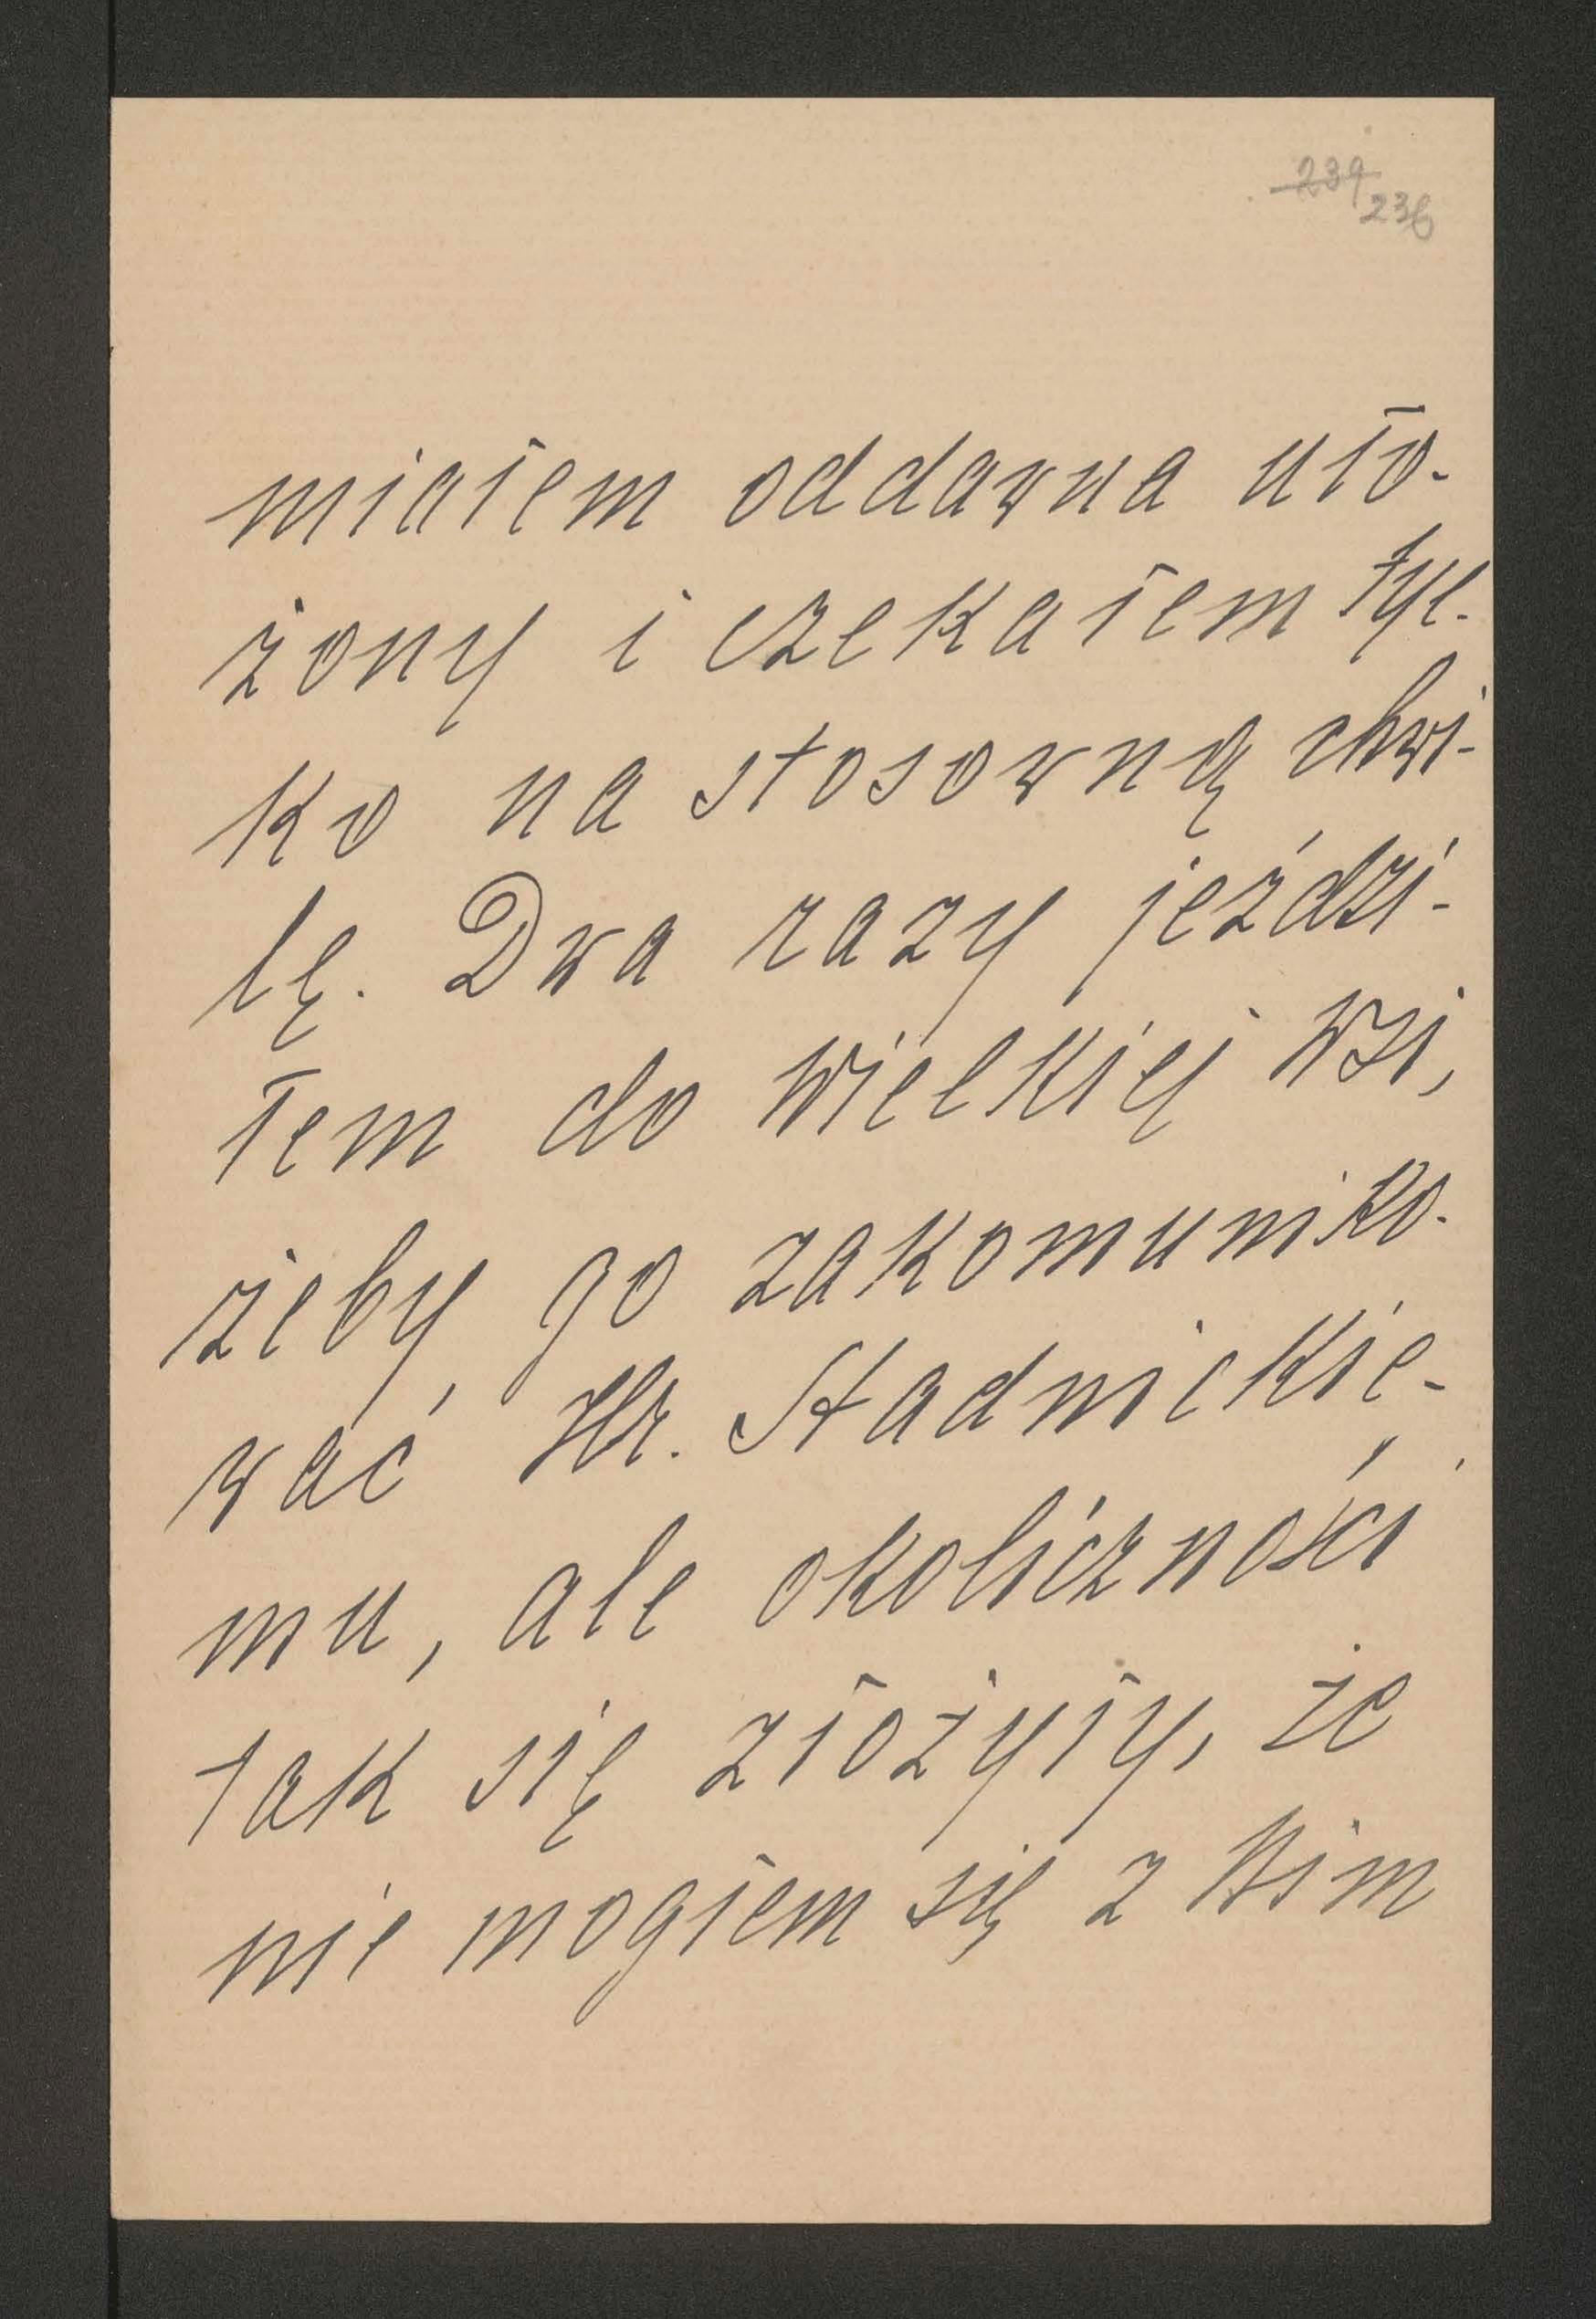 239
236
miałem oddawna uło-
żony i czekałem tyl-
ko na stosowną chwi-
lę. Dwa razy jeździ-
łem do Wielkiej Wsi,
żeby go zakomuniko-
wać Hr. Stadnickie-
mu, ale okoliczności
tak się złożyły, że
nie mogłem się z Nim